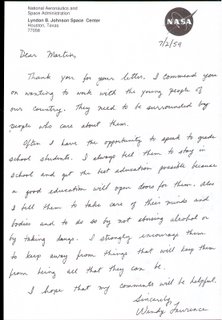 National Aeronautics and
Space Administration
Lyndon B. Johnson Space Center
Houston, Texas
77058
NASA
7/2/54
Dear Martin,
Thank you for your letter. I commend you
on wanting to work with the young people of
our country. They need to be surrounded by
people who care about them.
Often I have the opportunity to speak to grade
school students. I always tell them to stay in
school and get the best education possible because
a good education will open doors for them. Also
I tell them to take care of their minds and
bodies and to do so by not abusing alcohol or
by taking drugs. I strongly encourage them
to keep away from things that will keep them
from being all that they can be.
I hope that my comments will be helpful.
Sincerely,
Wendy Lawrence